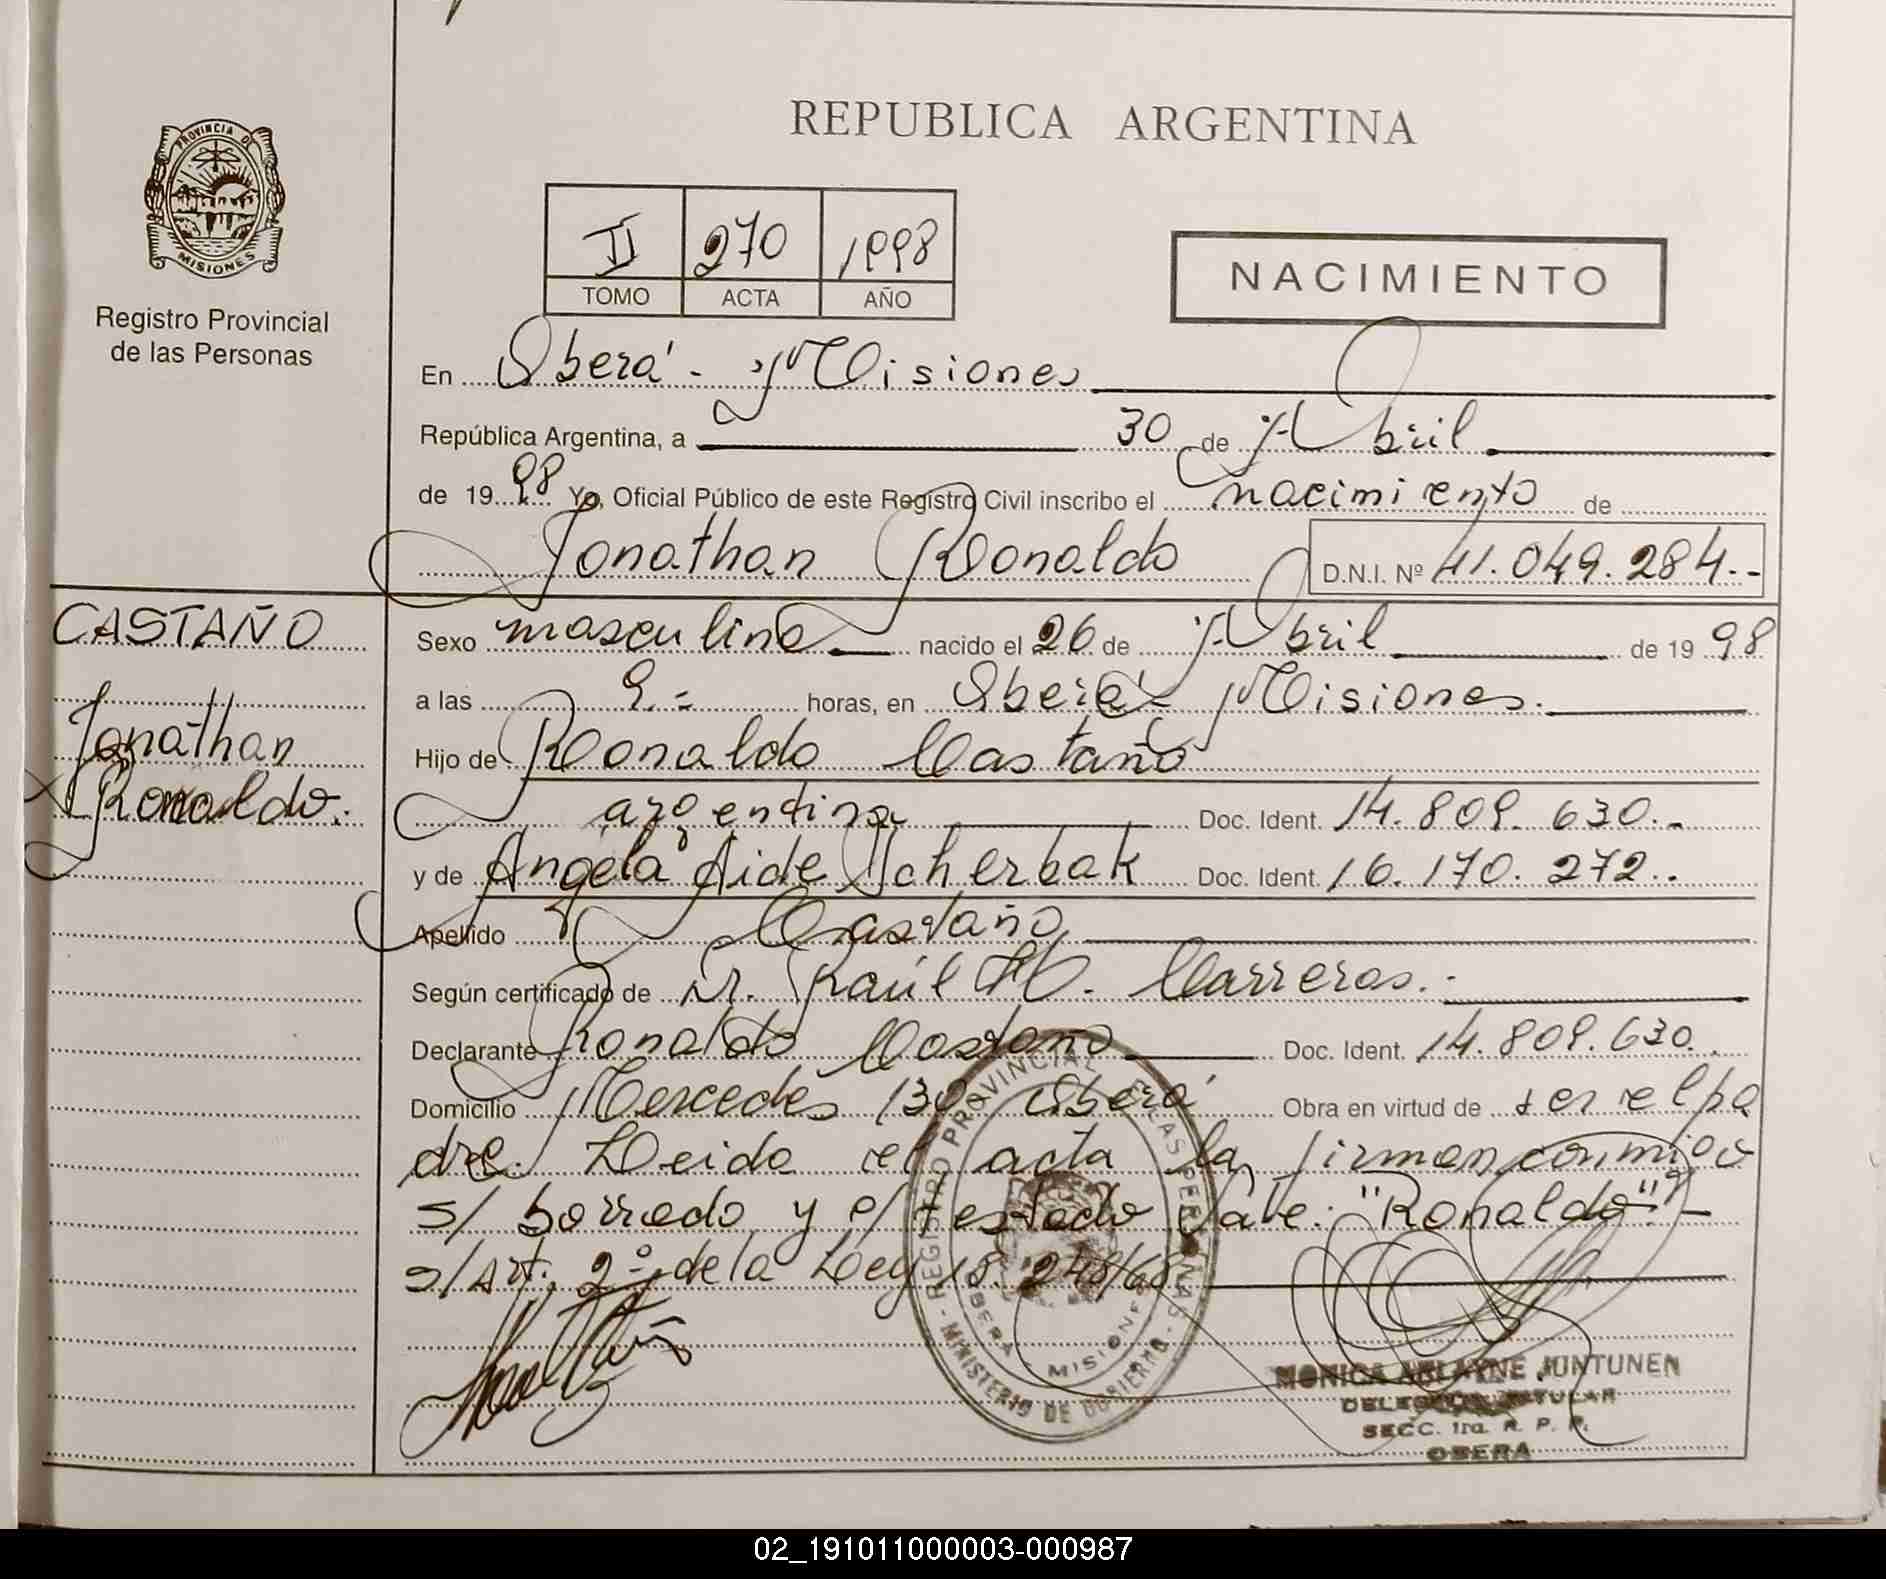 REPUBLICA ARGENTINA
PROVINCIA DE
MISIONES
Registro Provincial
de las Personas
II 270 1998
TOMO ACTA AÑO
NACIMIENTO
En Oberá - Misiones
República Argentina, a 30 de Abril
de 1998 Yo, Oficial Público de este Registro Civil inscribo el nacimiento de
Jonathan Ronaldo D.N.I. Nº 41.049.284.-
CASTAÑO
Jonathan
Ronaldo.
Sexo masculino nacido el 26 de Abril de 1998
a las 9.- horas, en Oberá - Misiones.
Hijo de Ronaldo Castaño
argentina Doc. Ident. 14.809.630.-
y de Angela Aide Scherbak Doc. Ident. 16.170.272..
Apellido Castaño
Según certificado de Dr. Raúl H. Carreras.-
Declarante Ronaldo Castaño Doc. Ident. 14.809.630.
Domicilio Mercedes 130 Oberá Obra en virtud de ser el pa
dre. Leida el acta la firman conmigo
s/ borrado y e/ testado Vale: "Ronaldo" -
s/Art. 2º de la Ley 18.248/68
REGISTRO PROVINCIAL DE LAS PERSONAS
OBERA - MISIONES
MINISTERIO DE GOBIERNO
MONICA JUNTUNEN
DELEGADA TITULAR
SECC. 1ra. R. P. P.
OBERA
02_191011000003-000987